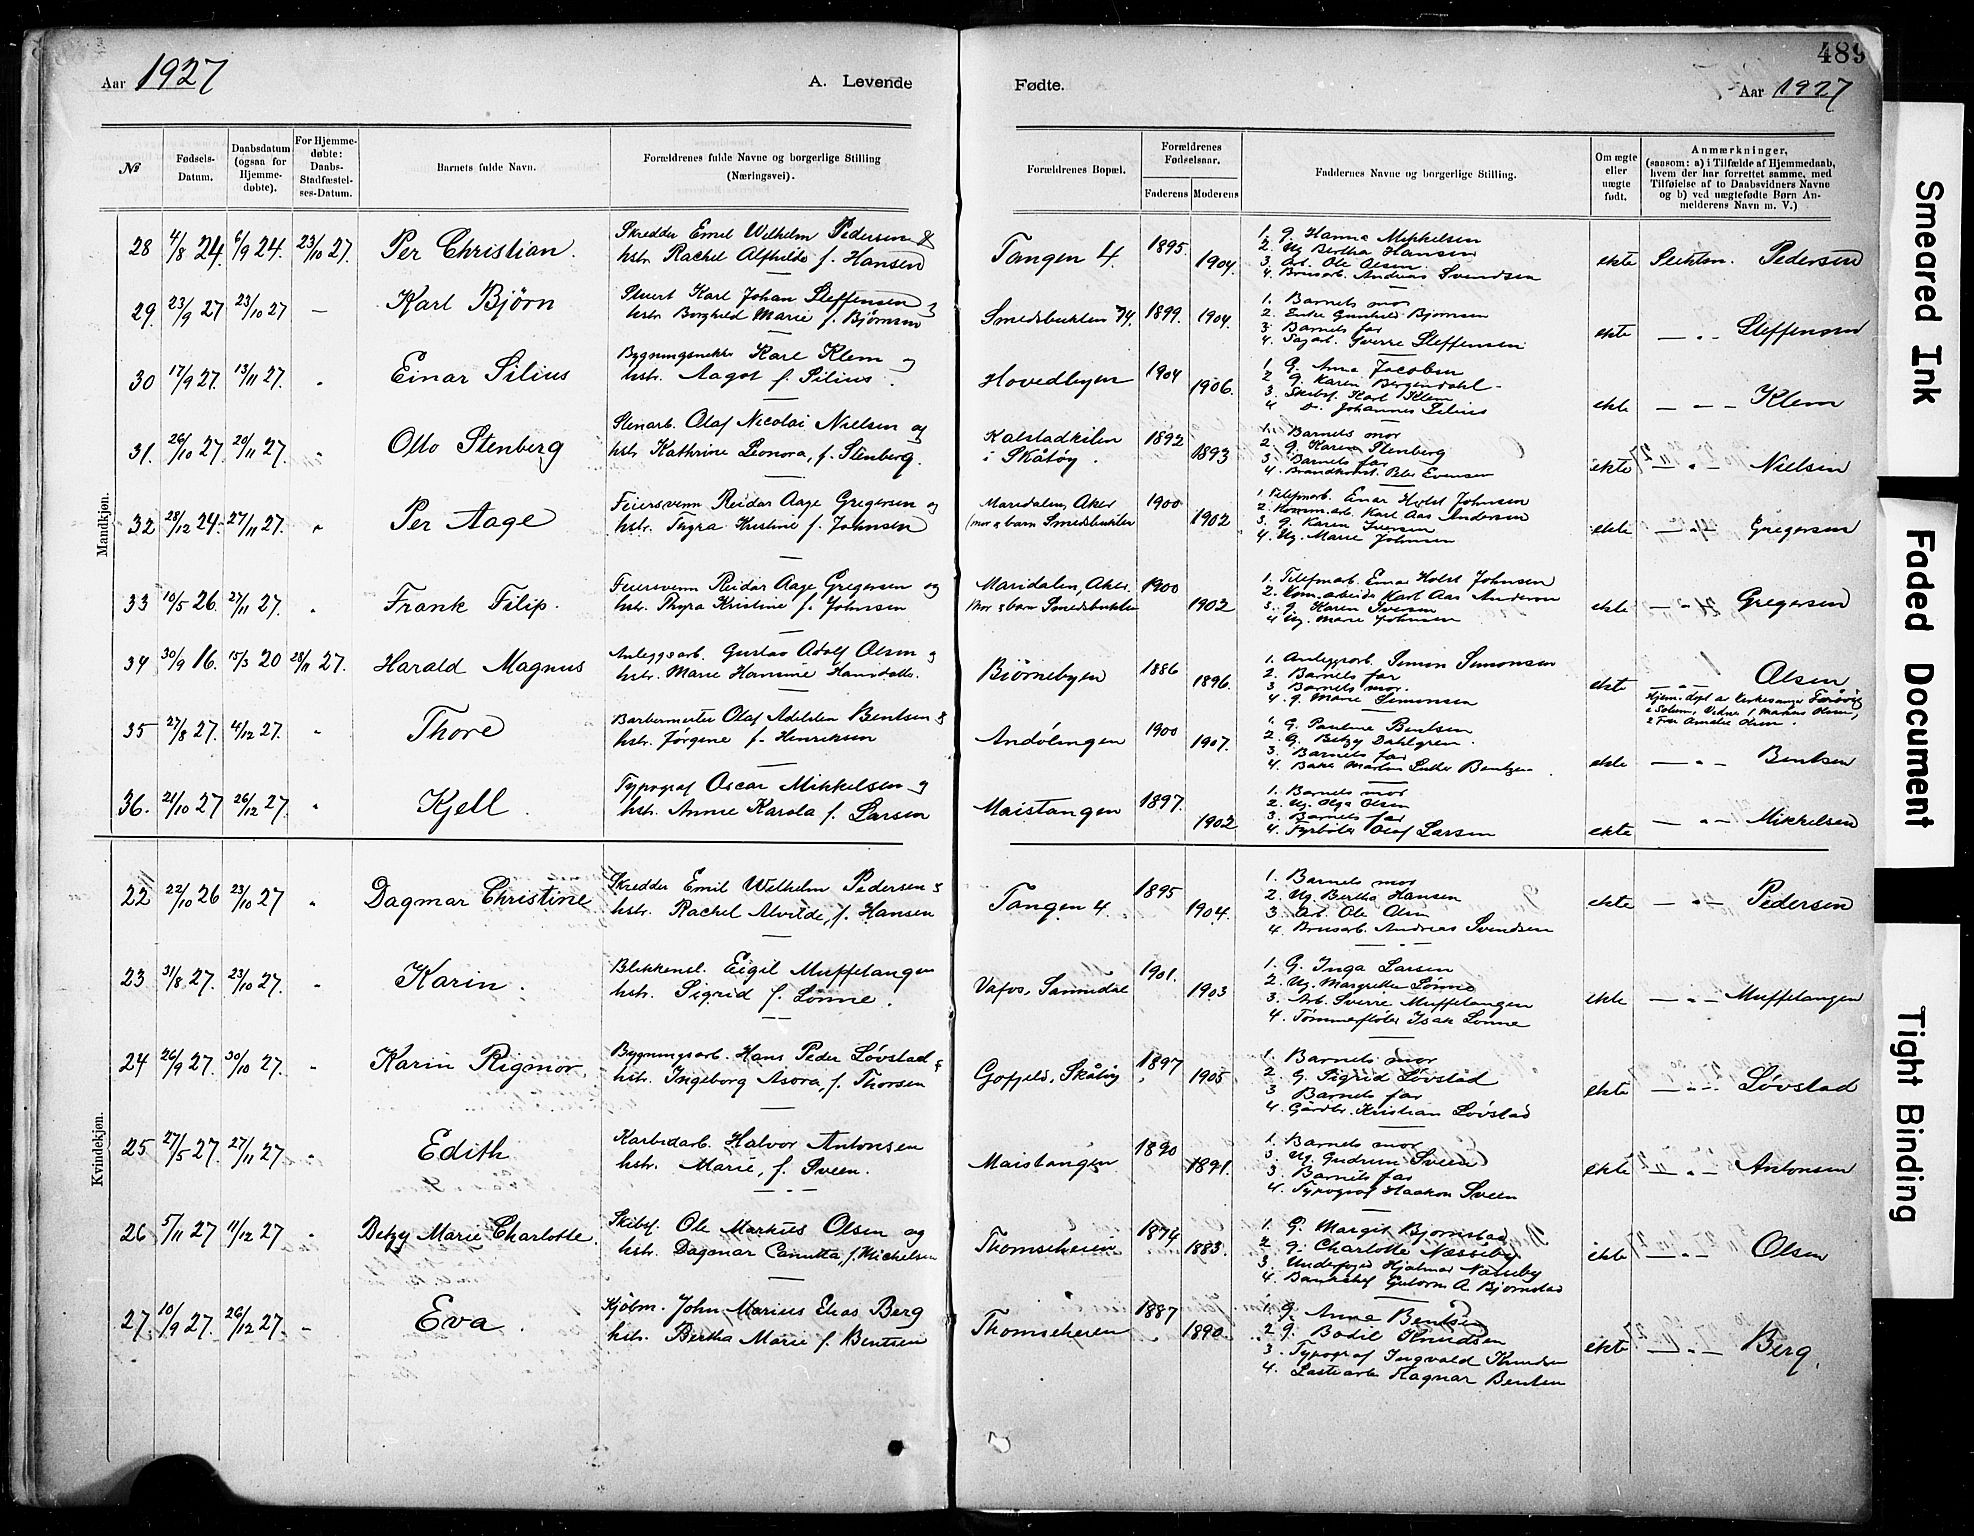 Aar 1927
A. Levende
Fødte.
489
Aar 1927
№
Fødsels-Datum.
Daabsdatum (ogsaa for Hjemme-døbte).
For Hjemme-døbte: Daabs-Stadfæstel-ses-Datum.
Barnets fulde Navn.
Forældrenes fulde Navne og borgerlige Stilling (Næringsvei).
Forældrenes Bopæl.
Forældrenes Fødselsaar.
Faderens
Moderens
Faddernes Navne og borgerlige Stilling.
Om ægte eller uægte født.
Anmærkninger,
(saasom: a) i Tilfælde af Hjemmedaab,
hvem der har forrettet samme, med
Tilføielse af to Daabsvidners Navne
og b) ved uægtefødte Børn An-
melderens Navn m. V.)
Mandkjøn.
28 4/8 24. 6/9 24. 23/10 27. Per Christian. Skredder Emil Wilhelm Pedersen &
hstr. Rachel Alfhilde f. Hansen
Tangen 4. 1895 1904.
1. g. Hanna Mikkelsen
2. Ug Bertha Hansen
3. Arb. Ole Olsen
4. Brusarb. Andreas Svendsen
ekte Pedersen
29. 23/9 27 23/10 27 — Karl Bjørn Stuert Karl Johan Steffensen
hstr. Borghild Marie f. Bjørnsen
Smedsbukten 74. 1899. 1904.
1. Barnets mor
2. Enke Gunhild Bjørnsen
3. Barnets far
4. Sagarb. Sverre Steffensen
ekte — " — Steffensen
30 17/9 27. 13/11 27. " Einar Silius Karl Klem og
hstr. Aagot f. Silius.
Hovedbyen 1904 1906.
1. G. Anna Jacobsen
2. g. Karen Bergendahl
3. Skibsf. Karl Klem
4. Do. Johannes Silius
ekte — — — Klem
31. 26/10 27. 20/11 27. " Otto Stenberg Stenarb. Olaf Nicolai Nielsen og
hstr. Kathrine Leonora, f. Stenberg.
Kalstadkilen
i Skåtøy. 1892 1893
1. Barnets mor
2. g. Karen Stenberg
3. Barnets far
4. Brandkonst. Peter Evensen
ekte — " — Nielsen
32 28/12 24. 27/11 27. " Per Aage Feiersvenn Reidar Aage Gregersen og
hstr. Thyra Kristine f. Johnsen
Maridalen, Aker
(mor & barn Smedsbukten 1900 1902
1. Telefonarb. Einar Holst Johnsen
2. Komm.arb. Karl Aas Andersen
3. g. Karen Iversen
4. Ug. Marie Johnsen
ekte — " — Gregersen
33 10/5 26. 27/11 27. " Frank Filip. Feiersvenn Reidar Aage Gregersen og
hstr. Thyra Kristine f. Johnsen
Maridalen, Aker.
Mor & barn Smedsbukten 1900 1902
1. Telefonarb. Einar Holst Johnsen
2. Kom. arbeider Karl Aas Andersen
3. g. Karen Iversen
4. Ug. Marie Johnsen
ekte — " — Gregersen
34 30/9 16. 15/3 20 28/11 27. Harald Magnus Anleggsarb. Gustav Adolf Olsen og
hstr. Marie Hansine Hansdatter
Bjørnebyen 1886 1896.
1. Anleggsarb. Simon Simonsen
2. Barnets far
3. Barnets mor.
4. g. Marie Simonsen
ekte — " — Olsen
Hjem. døpt av Kirkesanger
i Solum, Vidner 1. Markus Olsen,
2 Fru Amalie Olsen.
35 27/8 27. 4/12 27. " Thore Barbermester Olaf Adelsten Bentsen &
hstr. Jørgine f. Henriksen
Andølingen 1900 1907.
1. G. Pauline Bentsen
2. G. Betzy Dahlgren.
3. Barnets far
4. Baker Martin Luther Bentzen.
ekte — " — Bentsen
36. 21/10 27 26/12 27. " Kjell. Typograf Oscar Mikkelsen og
hstr. Annie Karola f. Larsen
Maistangen 1897. 1902
1. Barnets mor
2. Ug. Olga Olsen
3. Barnets far
4. Fyrbøter Olaf Larsen
ekte — " — Mikkelsen
Kvindekjøn.
22 22/10 26 23/10 27 " Dagmar Christine Skredder Emil Wilhelm Pedersen &
hstr. Rachel Alvilde, f. Hansen
Tangen 4. 1895 1904.
1. Barnets mor
2. Ug Bertha Hansen
3. Arb. Ole Olsen
4. Brusarb. Andreas Svendsen
ekte — " — Pedersen
23 31/8 27. 23/10 27. " Karin. Blikkensl. Eigil Muffetangen
hstr. Sigrid f. Lønne.
Vafos, Sannidal 1901. 1903
1. G. Inga Larsen
2. Ug. Margrethe Lønne
3. Arb. Sverre Muffetangen
4. Tømmerfløter Isak Lønne
ekte — " — Muffetangen
24 26/9 27. 30/10 27. " Karin Rigmor. Bygningsarb. Hans Peder Løvstad &
hstr. Ingeborg Asora, f. Thorsen
Gofjeld, Skåtøy 1897 1905
1. Barnets mor
2. G. Sigrid Løvstad
3 Barnets far
4. Gårdbr. Kristian Løvstad
ekte — " — Løvstad
25 27/5 27. 27/11 27. " Edith Karbidarb. Halvor Antonsen
hstr. Marie, f. Sveen.
Maistangen 1890 1891.
1. Barnets mor
3. Ug. Gudrun Sveen
3. Barnets far
4. Typograf Haakon Sveen
ekte — " — Antonsen
26 5/11 27 11/12 27 " Betzy Marie Charlotte. Skibsf. Ole Markus Olsen og
hstr. Dagmar Canutta, f. Michelsen
Thomsekeren 1874 1883.
1. G. Margit Bjørnstad
2. g. Charlotte Næsseby
3. Underfoged Hjalmar Næsseby
4. Bankchef Guttorm A Bjørnstad
ekte — " — Olsen
27 10/9 27. 26/12 27. — Eva. Kjølm. John Marius Elias Berg
hstr. Bertha Marie f. Bentsen
Thomsekeren 1887 1890.
1. g. Anna Bentsen
2 g. Bodil Knudsen
3. Typograf Ingvald Knudsen
4. Lastearb. Ragnar Bentsen
ekte — " — Berg.
Smeared Ink
Faded Document
Tight Binding